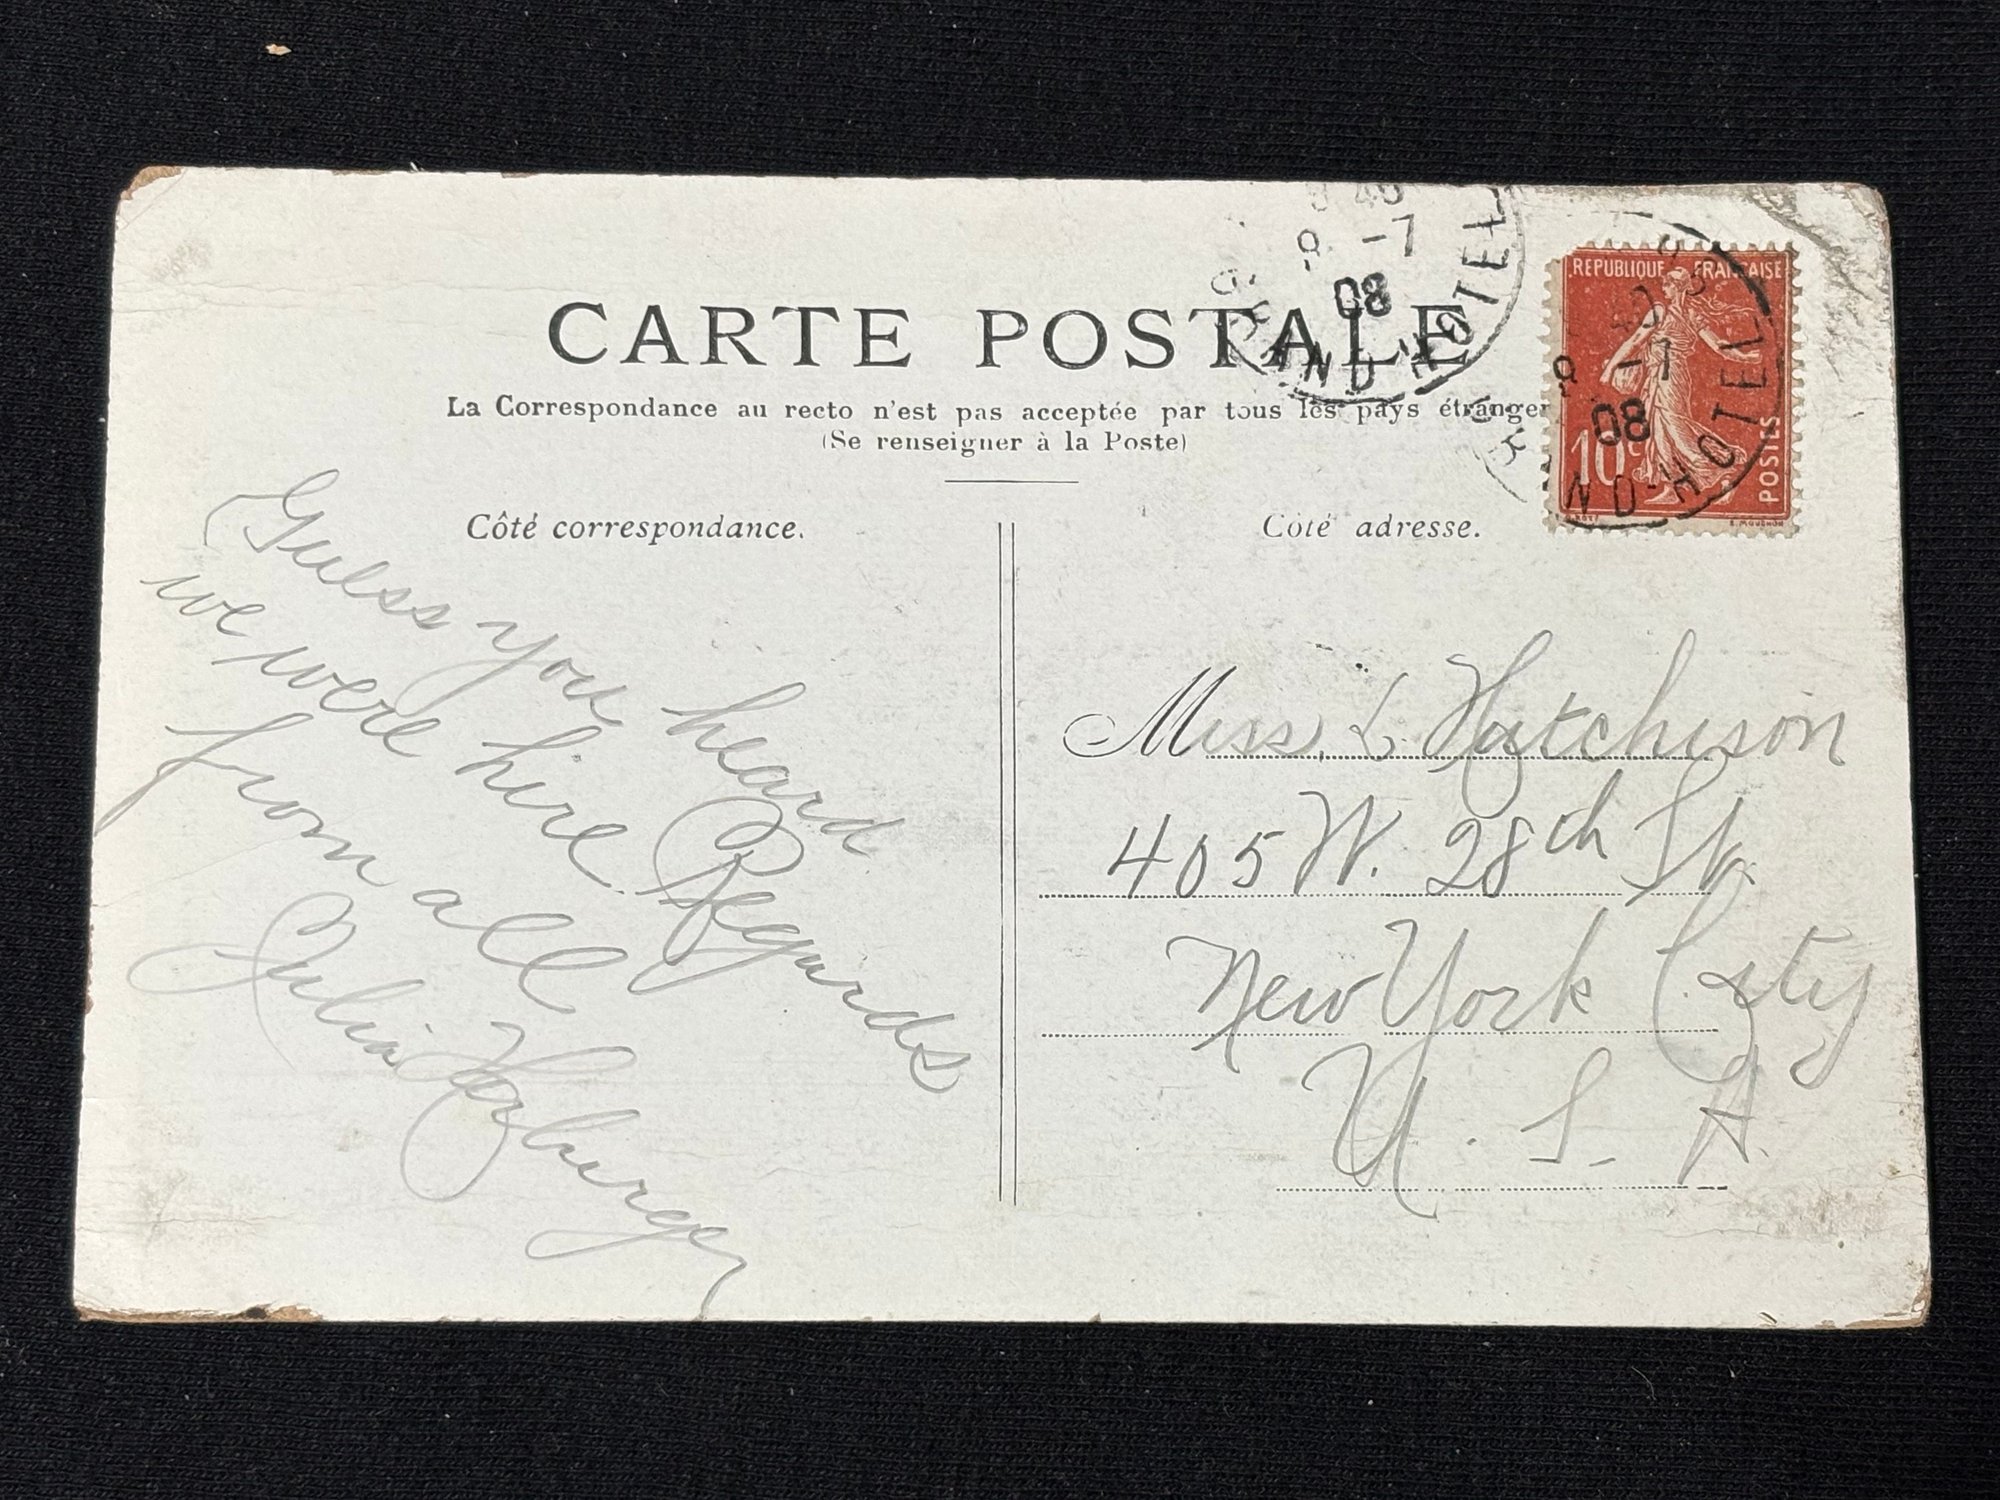 CARTE POSTALE
La Correspondance au recto n'est pas acceptée par tous les pays étranger
(Se renseigner à la Poste)
Côté correspondance.
Côté adresse.
GRAND-HOTEL
8 -7
08
REPUBLIQUE FRANÇAISE
10c
POSTES
E. MOUCHON
GRAND-HOTEL
8 -7
08
Guess you heard
we were hire Regards
from all
Julia
Miss L Hutchison
405 W. 28th St.
New York City
U. S. A.